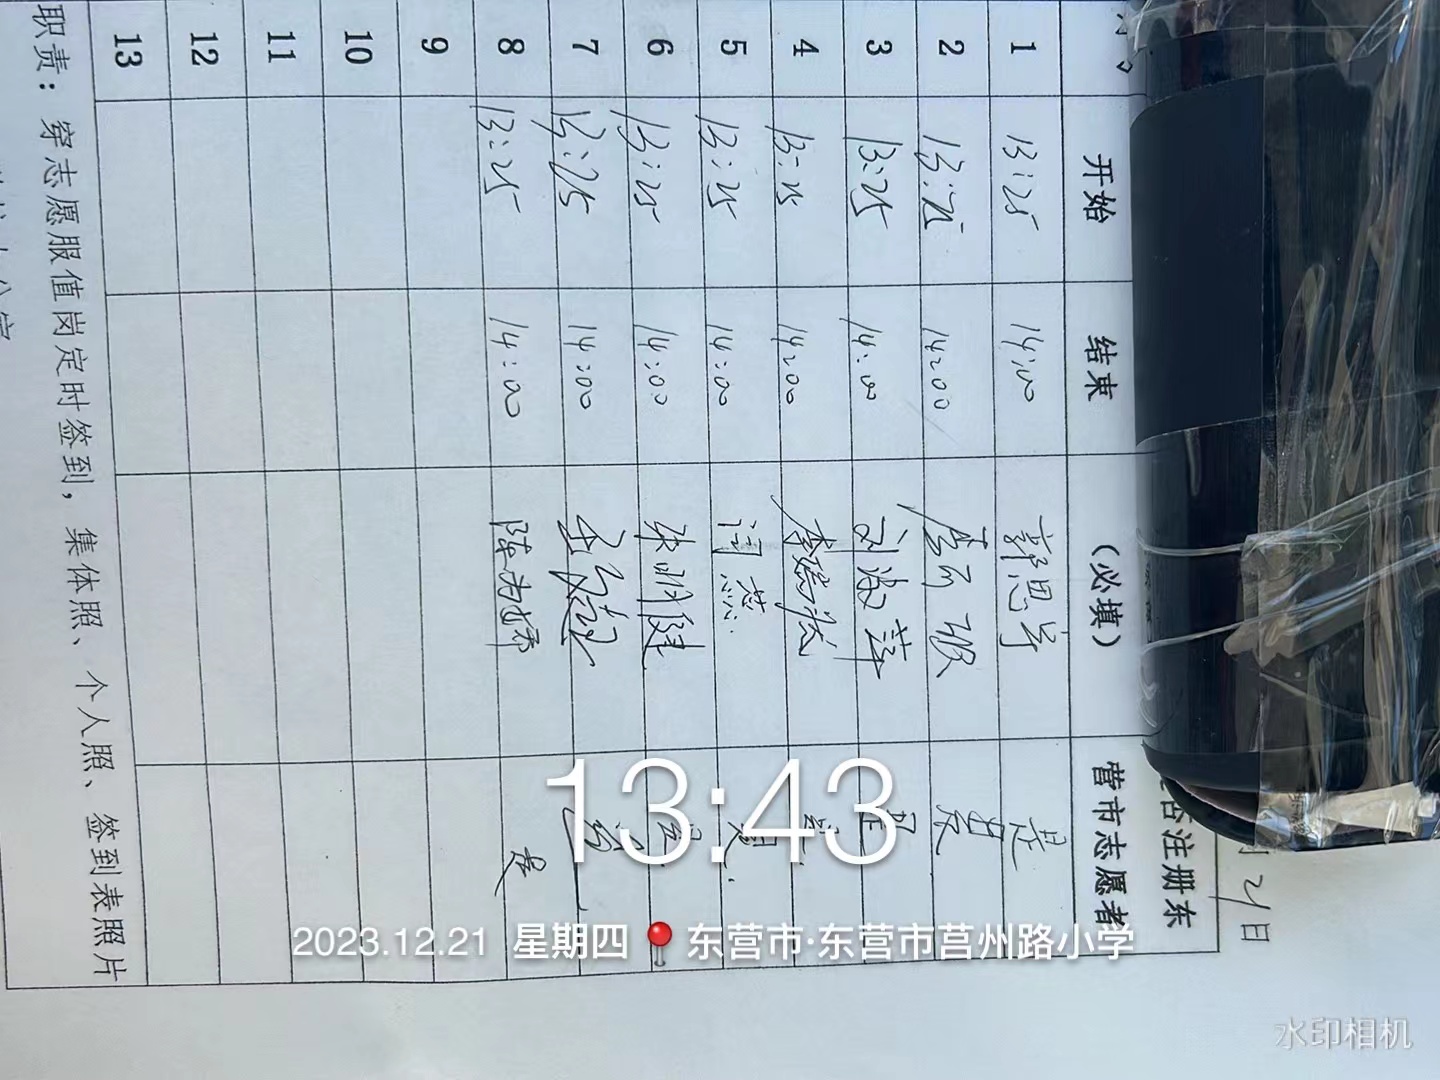 日
开始 结束 （必填） 否注册东
营市志愿者
1 13:25 14:00 郭思 是
2 13:25 14:00 是
3 13:25 14:00 刘海萍 是
4 13:25 14:00 李 是
5 13:25 14:00 闫燕 是
6 13:25 14:00 朱明健 是
7 13:25 14:00 是
8 13:25 14:00 陈 是
9
10
11
12
13
职责：穿志愿服值岗定时签到，集体照、个人照、签到表照片
13:43
2023.12.21 星期四 东营市·东营市莒州路小学
水印相机